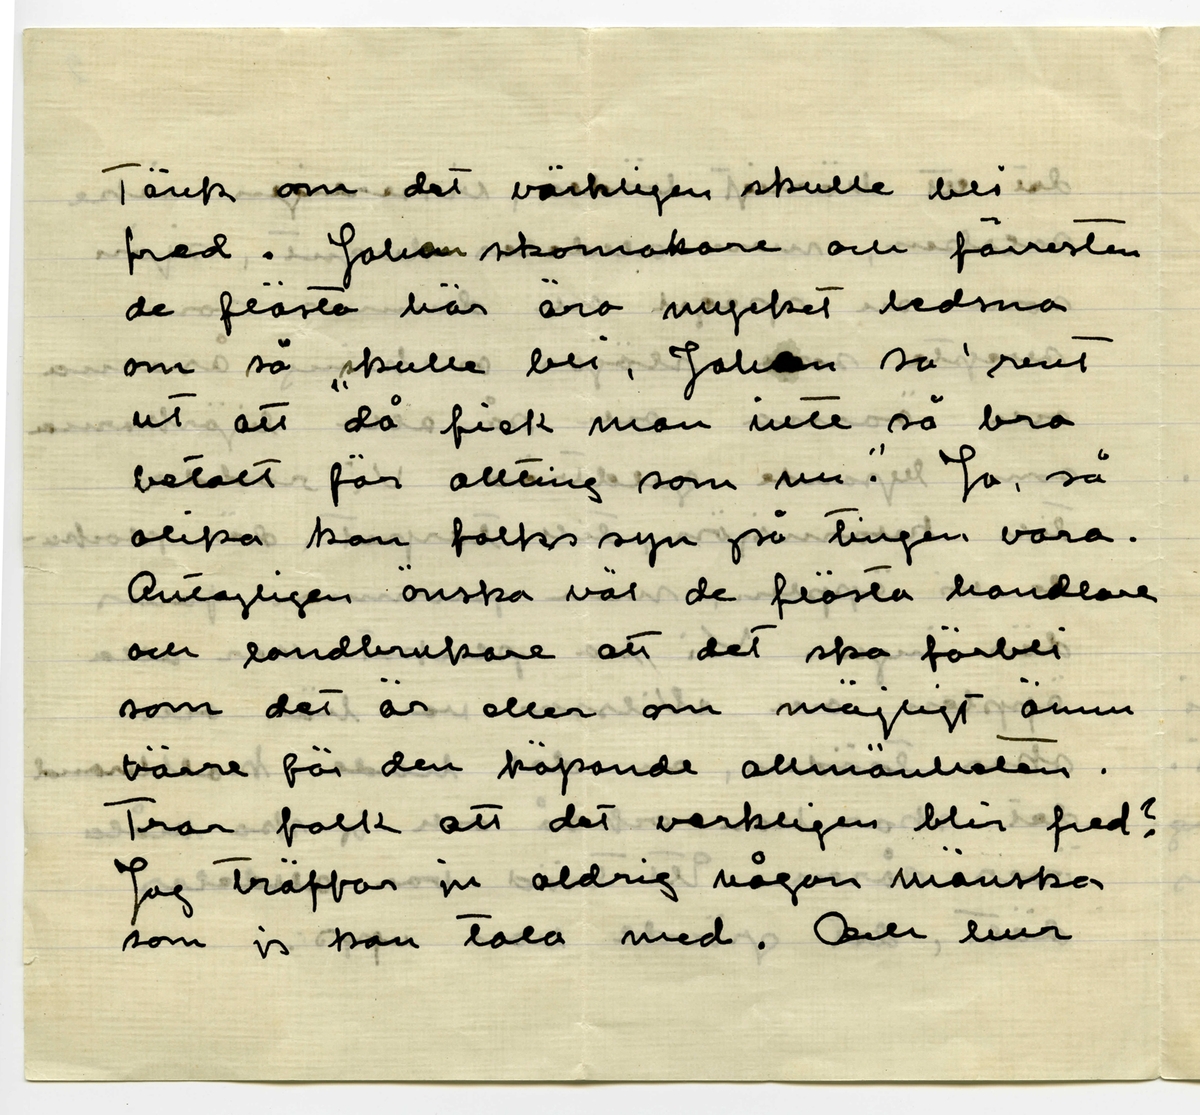 Tänk om det värkligen skulle bli
fred. Johan skomakare och förresten
de flästa här äro mycket ledsna
om så skulle bli, Johan sa' rent
ut att „då fick man inte så bra
betalt för allting som nu". Ja, så
olika kan folks syn på tingen vara.
Antagligen önska väl de flästa handlare
och landbrukare att det ska förbli
som det är eller om möjligt ännu
värre för den köpande, allmänheten.
Tror folk att det verkligen blir fred?
Jag träffar ju aldrig någon mänska
som jg kan tala med. Och hur